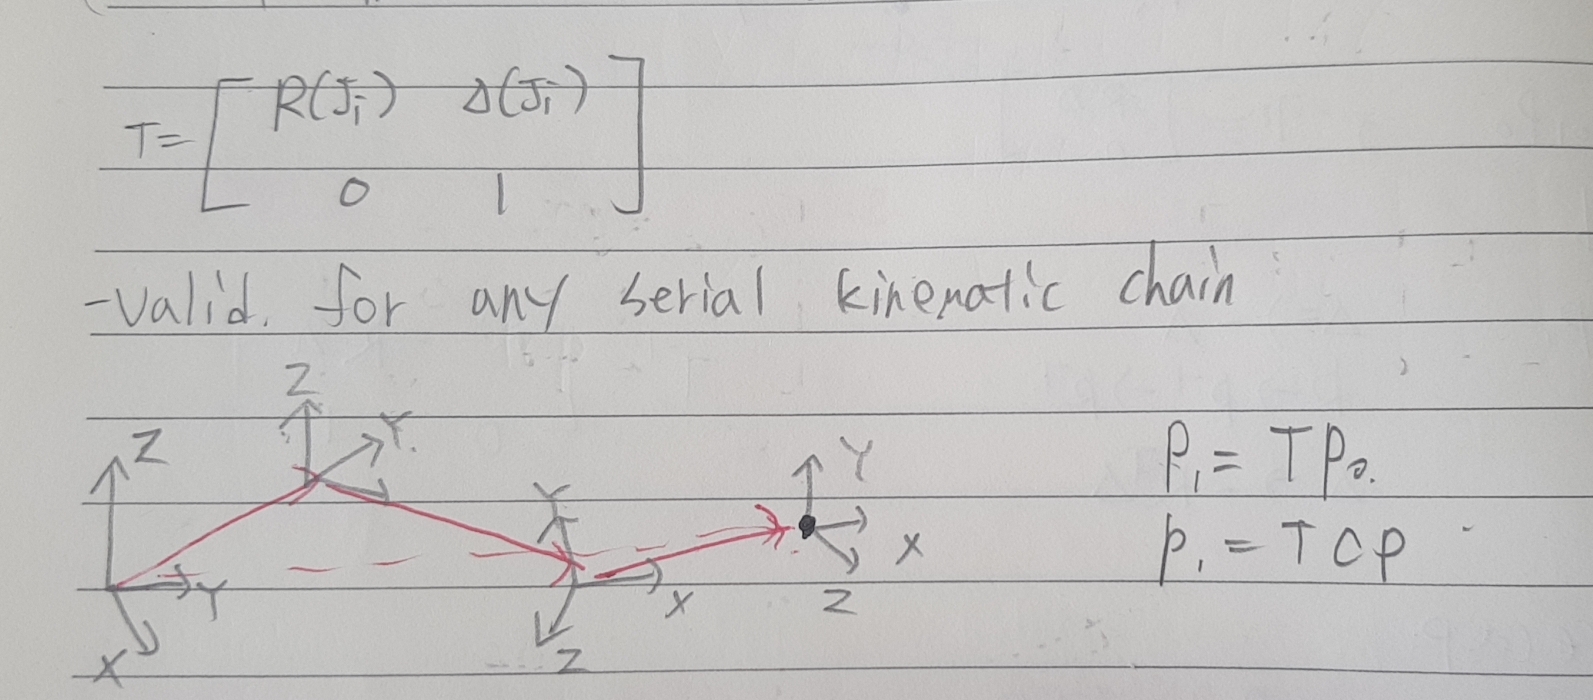 T= [ R(Ji) Δ(Ji)
0 1 ]
-Valid. for any serial kinematic chain
Z
Z Y.
Y X
Y X Z
Y X Z
P1 = TP0.
P1 = TCP